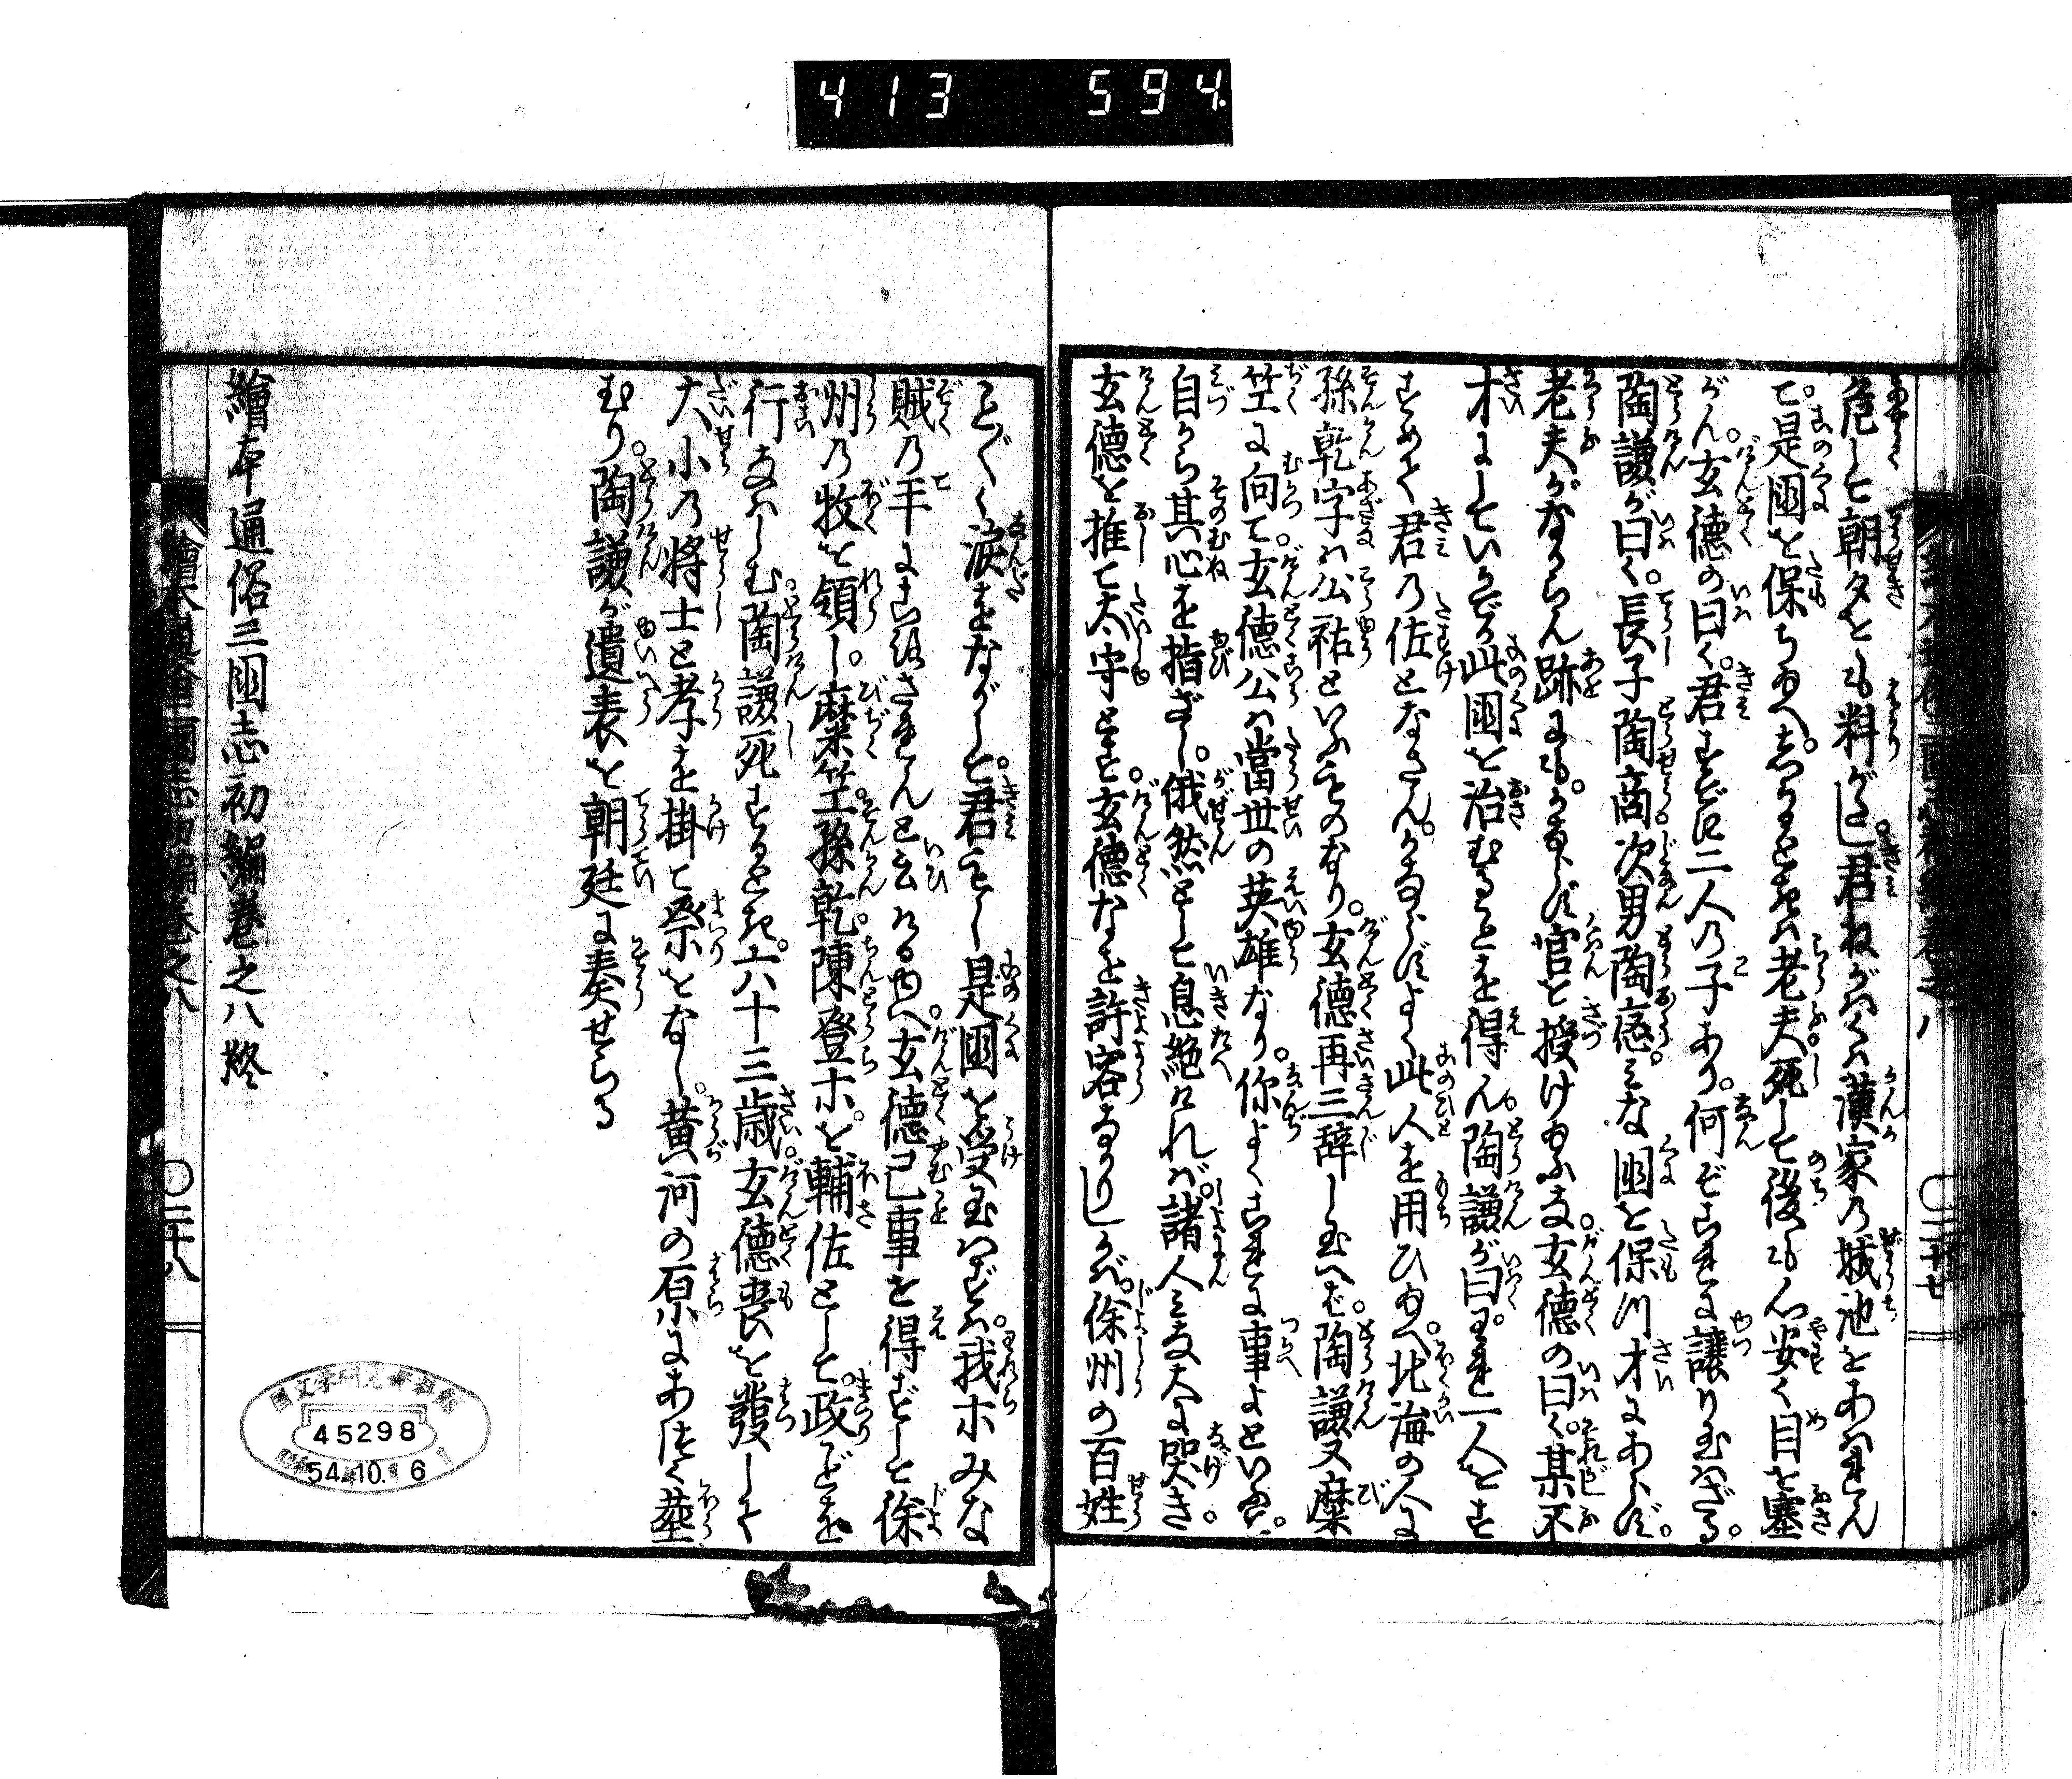 413 594
危して朝夕をも料がたし君ねがはくは漢家の城池をあはれん
で是国を保ち給へしかるときは老夫死して後も心安く目を塞
がん玄徳の曰く君すでに二人の子あり何ぞこれに譲り玉はざる
陶謙が曰く長子陶商次男陶應みな国を保つ才にあらず
老夫がなからん跡にもかならず官を授け給ふな玄徳の曰く某不
才にしていかでか此国を治むることを得ん陶謙が曰われ一人をす
すめて君の佐となさんかならずよく此人を用ひ給へ北海の人に
孫乾字は公祐といふものなり玄徳再三辞し玉へば陶謙又糜
竺に向て玄徳公は當世の英雄なり你よくこれに事よといふて
自から其心を指ざし俄然として息絶ければ諸人みな大に哭き
玄徳を推て太守とす玄徳なを許容なかりしが徐州の百姓
ことごとく涙をながして君もし是国を受玉はずんば我ホみな
賊の手にころされんと云ける由へ玄徳已事を得ずして徐
州の牧を領し糜竺孫乾陳登ホを輔佐として政ごとを
行なはしむ陶謙死するとき六十三歳玄徳喪を發して
大小の将士と孝を掛て祭をなし黄河の原にあつく葬
むり陶謙が遺表を朝廷に奏せらる
繪本通俗三國志初編巻之八終
繪本通俗三國志初編巻之八
〇二十八
45298
54.10.16